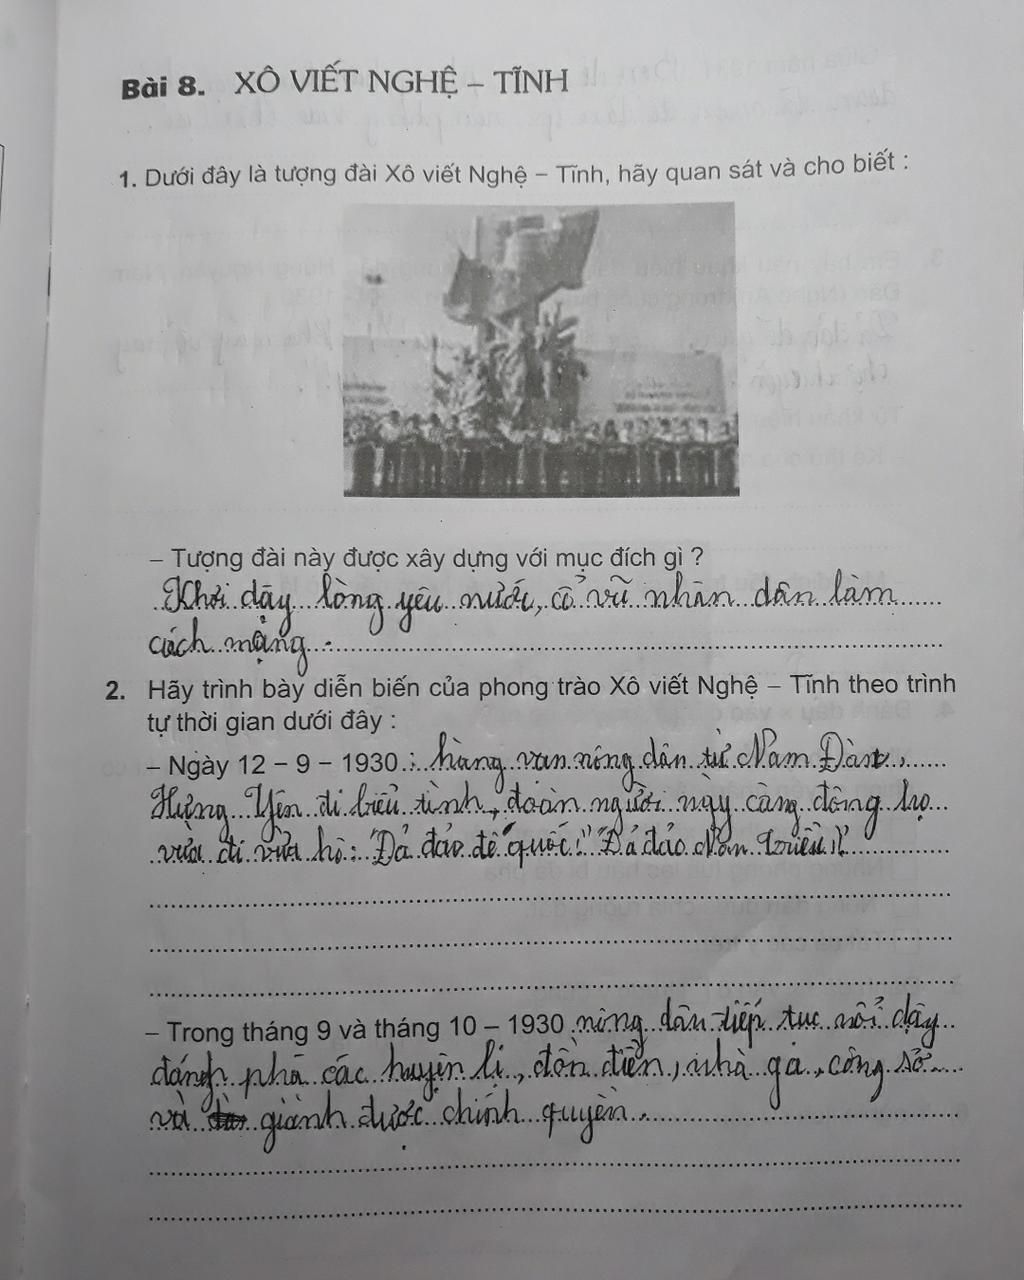 Bài 8. XÔ VIẾT NGHỆ – TĨNH
1. Dưới đây là tượng đài Xô viết Nghệ – Tĩnh, hãy quan sát và cho biết :
– Tượng đài này được xây dựng với mục đích gì ?
Khơi dậy lòng yêu nước, cổ vũ nhân dân làm
cách mạng.
2. Hãy trình bày diễn biến của phong trào Xô viết Nghệ – Tĩnh theo trình
tự thời gian dưới đây :
– Ngày 12 – 9 – 1930 : hàng vạn nông dân từ Nam Đàn,
Hưng Yên đi biểu tình, đoàn người ngày càng đông họ
vừa đi vừa hô: "Đả đảo đế quốc!" "Đả đảo Nam triều!"
– Trong tháng 9 và tháng 10 – 1930 nông dân tiếp tục nổi dậy
đánh phá các huyện lị, đồn điền, nhà ga, công sở
và giành được chính quyền.